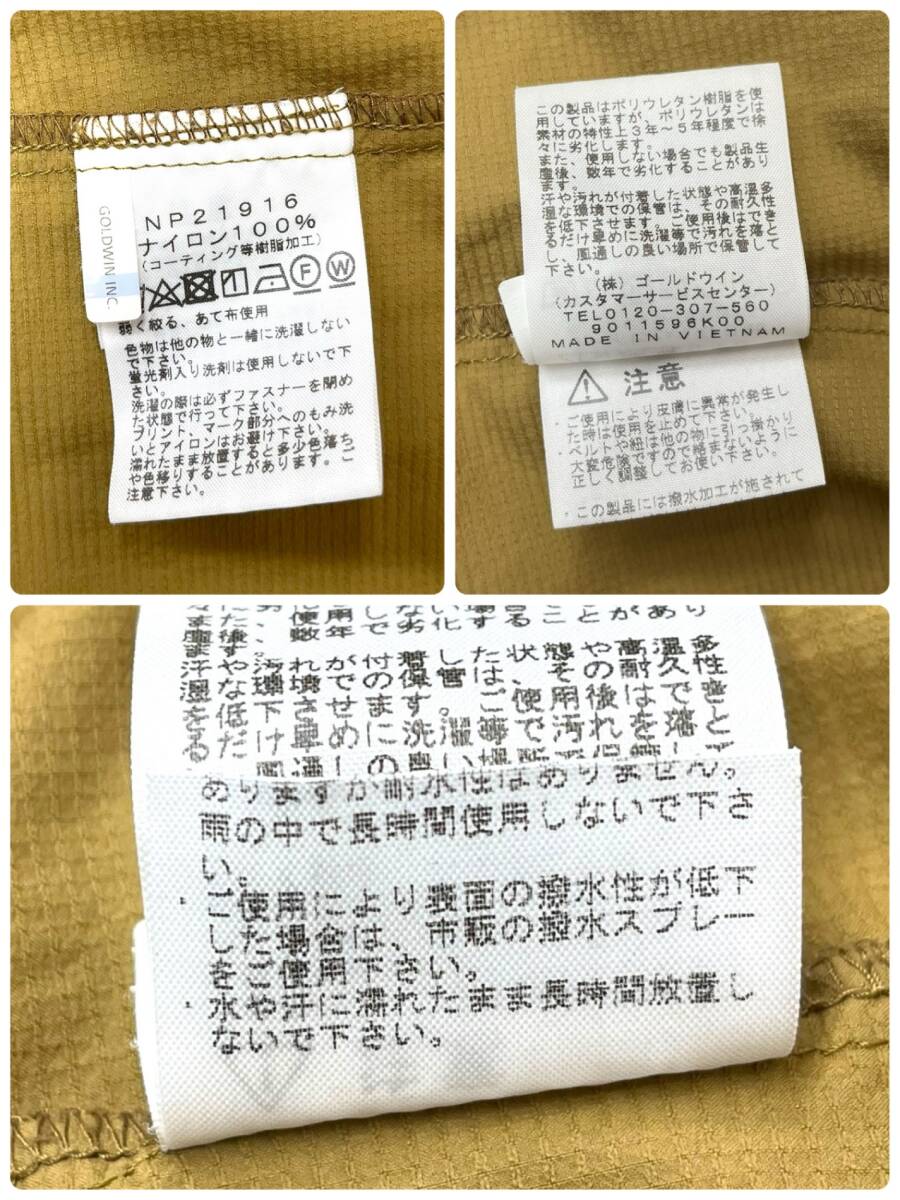 GOLDWIN INC.
NP21916
ナイロン100%
(コーティング等樹脂加工)
F W
弱く絞る、あて布使用
色物は他の物と一緒に洗濯しない
で下さい。
蛍光剤入り洗剤は使用しないで下
さい。
洗濯の際は必ずファスナーを閉め
た状態で行って下さい。
プリント、マーク部分へのもみ洗
いとアイロンはお避け下さい。
濡れたまま放置すると多少色落ち
や色移りすることがあります。ご
注意下さい。
この製品はポリウレタン樹脂を使
用していますが、ポリウレタンは
素材の特性上3年〜5年程度で徐
々に劣化します。
また、使用しない場合でも製品生
産後、数年で劣化することがあり
ます。
汗や汚れが付着した状態や高温多
湿な環境での保管は、その耐久性
を低下させます。ご使用後はでき
るだけ早めに洗濯等で汚れを落と
し、風通しの良い場所で保管して
下さい。
(株) ゴールドウイン
(カスタマーサービスセンター)
TEL0120-307-560
9011596K00
MADE IN VIETNAM
注意
・ご使用により皮膚に異常が発生し
た時は使用を止めて下さい。
・ベルトや紐は他の物に引っ掛かり
大変危険ですので絡まないように
正しく調整してお使い下さい。
・この製品には撥水加工が施されて
々に劣化します。
た、使用しない場合でも
後、数年で劣化することがあり
ます
汗や汚れが付着した状態や高温多
湿な環境での保管は、その耐久性
を低下させます。ご使用後はでき
るだけ早めに洗濯等で汚れを落と
し、風通しの良い場所で保管して
ありますが耐水性はありません。
雨の中で長時間使用しないで下さ
い。
・ご使用により表面の撥水性が低下
した場合は、市販の撥水スプレー
をご使用下さい。
・水や汗に濡れたまま長時間放置し
ないで下さい。